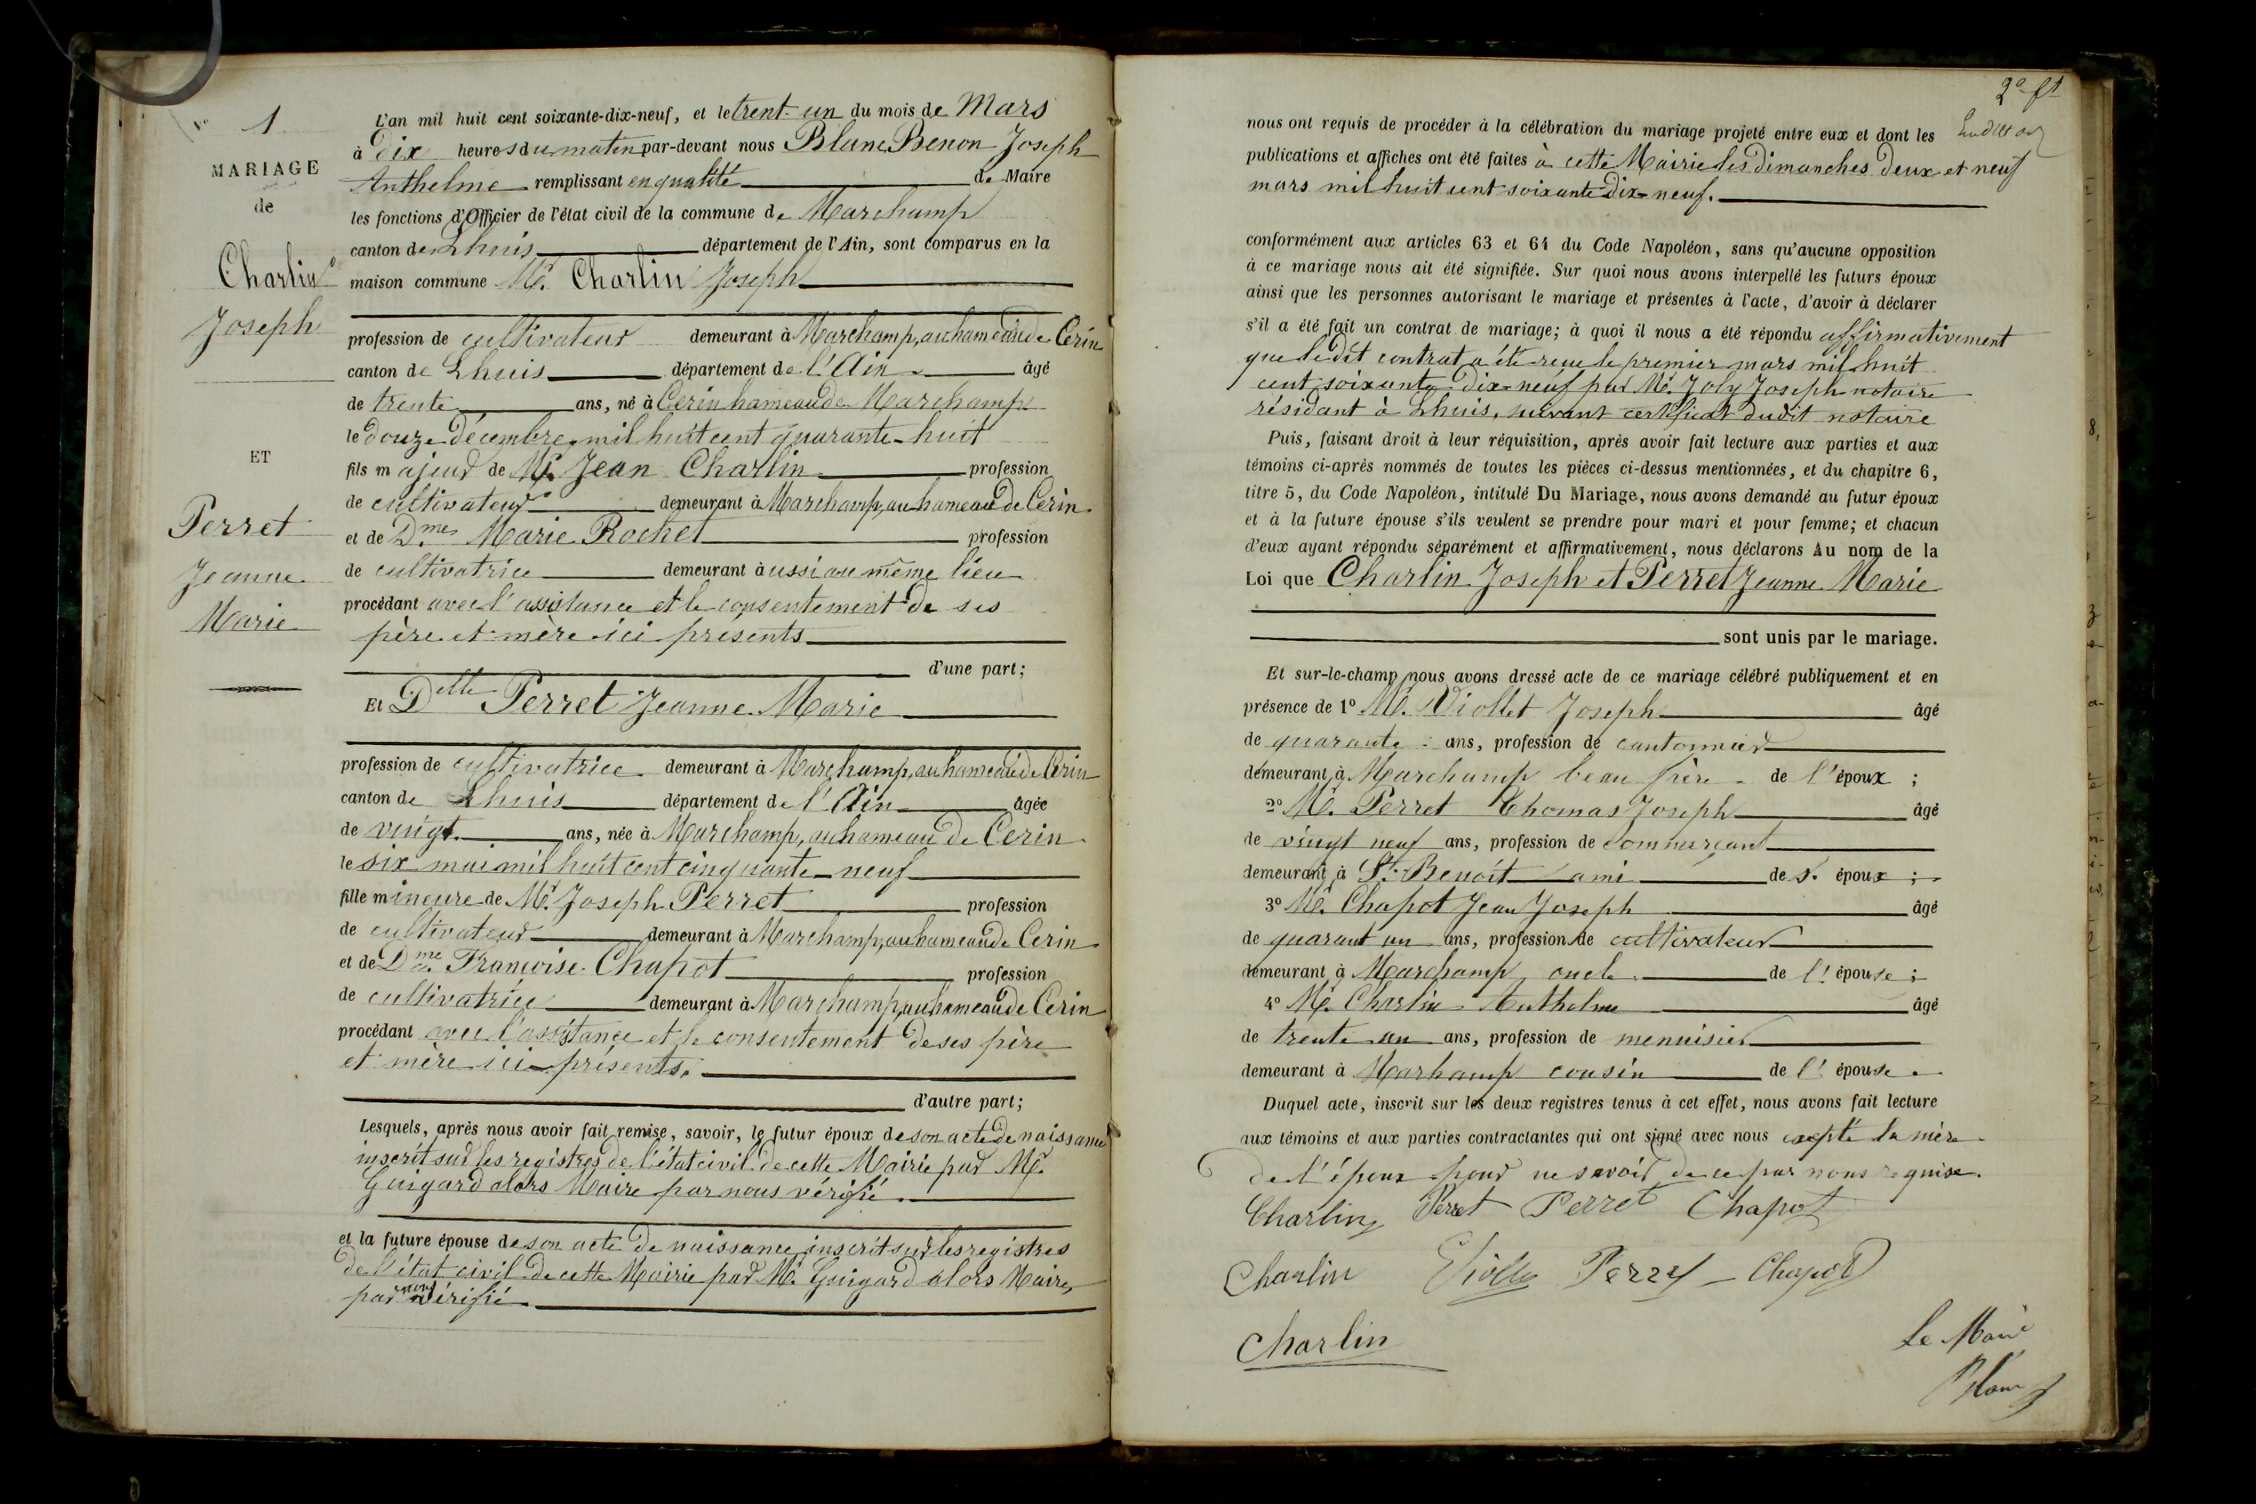 N° 1
MARIAGE
de
Charlin
Joseph
ET
Perret
Jeanne
Marie
L'an mil huit cent soixante-dix-neuf, et le trent-un du mois de Mars
à Dix heures du matin par-devant nous Blanc Benon Joseph
Anthelme remplissant en qualité de Maire
les fonctions d'Officier de l'état civil de la commune de Marchamp
canton de Lhuis département de l'Ain, sont comparus en la
maison commune Mr. Charlin Joseph
profession de cultivateur demeurant à Marchamp, au hameau de Cerin
canton de Lhuis département de l'Ain âgé
de trente ans, né à Cerin hameau de Marchamp
le douze Décembre mil huit cent quarante-huit
fils majeur de Mr. Jean Charlin profession
de cultivateur demeurant à Marchamp, au hameau de Cerin
et de Dme Marie Rochet profession
de cultivatrice demeurant aussi au même lieu
procédant avec l'assistance et le consentement de ses
père et mère ici présents
d'une part;
Et Delle Perret Jeanne Marie
profession de cultivatrice demeurant à Marchamp, au hameau de Cerin
canton de Lhuis département de l'Ain âgée
de vingt ans, née à Marchamp, au hameau de Cerin
le six mai mil huit cent cinquante-neuf
fille mineure de Mr. Joseph Perret profession
de cultivateur demeurant à Marchamp, au hameau de Cerin
et de Dme Françoise Chapot profession
de cultivatrice demeurant à Marchamp, au hameau de Cerin
procédant avec l'assistance et le consentement de ses père
et mère ici présents.
d'autre part;
Lesquels, après nous avoir fait remise, savoir, le futur époux de son acte de naissance
inscrit sur les registres de l'état civil de cette Mairie par Mr.
Guigard alors Maire par nous vérifié.
et la future épouse de son acte de naissance inscrit sur les registres
de l'état civil de cette Mairie par Mr. Guigard alors Maire,
par nous vérifié
2e ft
nous ont requis de procéder à la célébration du mariage projeté entre eux et dont les
publications et affiches ont été faites à cette Mairie les dimanches deux et neuf
mars mil huit cent soixante-dix-neuf.
conformément aux articles 63 et 64 du Code Napoléon, sans qu'aucune opposition
à ce mariage nous ait été signifiée. Sur quoi nous avons interpellé les futurs époux
ainsi que les personnes autorisant le mariage et présentes à l'acte, d'avoir à déclarer
s'il a été fait un contrat de mariage; à quoi il nous a été répondu affirmativement
que le dit contrat a été reçu le premier mars mil huit
cent soixante-dix-neuf par Mr. Joly Joseph notaire
résidant à Lhuis, suivant certificat dudit notaire
Puis, faisant droit à leur réquisition, après avoir fait lecture aux parties et aux
témoins ci-après nommés de toutes les pièces ci-dessus mentionnées, et du chapitre 6,
titre 5, du Code Napoléon, intitulé Du Mariage, nous avons demandé au futur époux
et à la future épouse s'ils veulent se prendre pour mari et pour femme; et chacun
d'eux ayant répondu séparément et affirmativement, nous déclarons Au nom de la
Loi que Charlin Joseph et Perret Jeanne Marie
sont unis par le mariage.
Et sur-le-champ nous avons dressé acte de ce mariage célébré publiquement et en
présence de 1° Mr. Viollet Joseph âgé
de quarante ans, profession de cantonnier
demeurant à Marchamp beau frère de l'époux;
2° Mr. Perret Thomas Joseph âgé
de vingt neuf ans, profession de Commerçant
demeurant à St. Benoît ami des époux;
3° Mr. Chapot Jean Joseph âgé
de quarant un ans, profession de cultivateur
demeurant à Marchamp, oncle de l'épouse;
4° Mr. Charlin Anthelme âgé
de trente un ans, profession de menuisier
demeurant à Marhamp cousin de l'épouse.
Duquel acte, inscrit sur les deux registres tenus à cet effet, nous avons fait lecture
aux témoins et aux parties contractantes qui ont signé avec nous excepté la mère
de l'époux pour ne savoir de ce par nous requise.
Charlin Perret Perret Chapot
Charlin Violle Perret Chapot
Charlin
Le Maire
Blanc